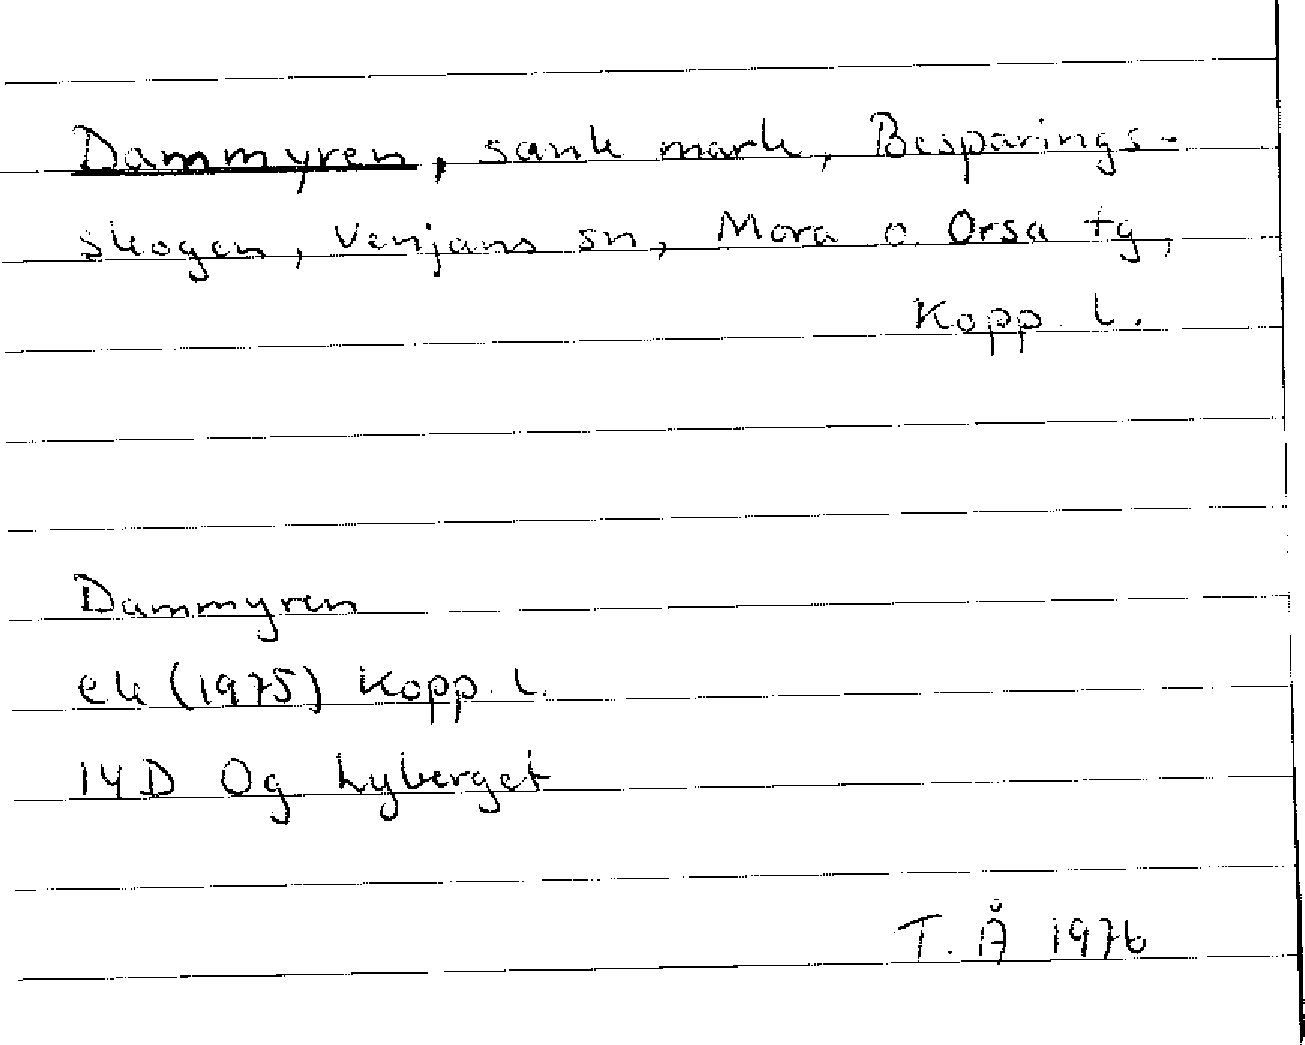 Dammyren, sank mark, Besparings-
skogen, Venjans sn, Mora o. Orsa tg,
Kopp. l.
Dammyren
ek (1975) Kopp. l.
14D 0g Lyberget
T. Å 1976